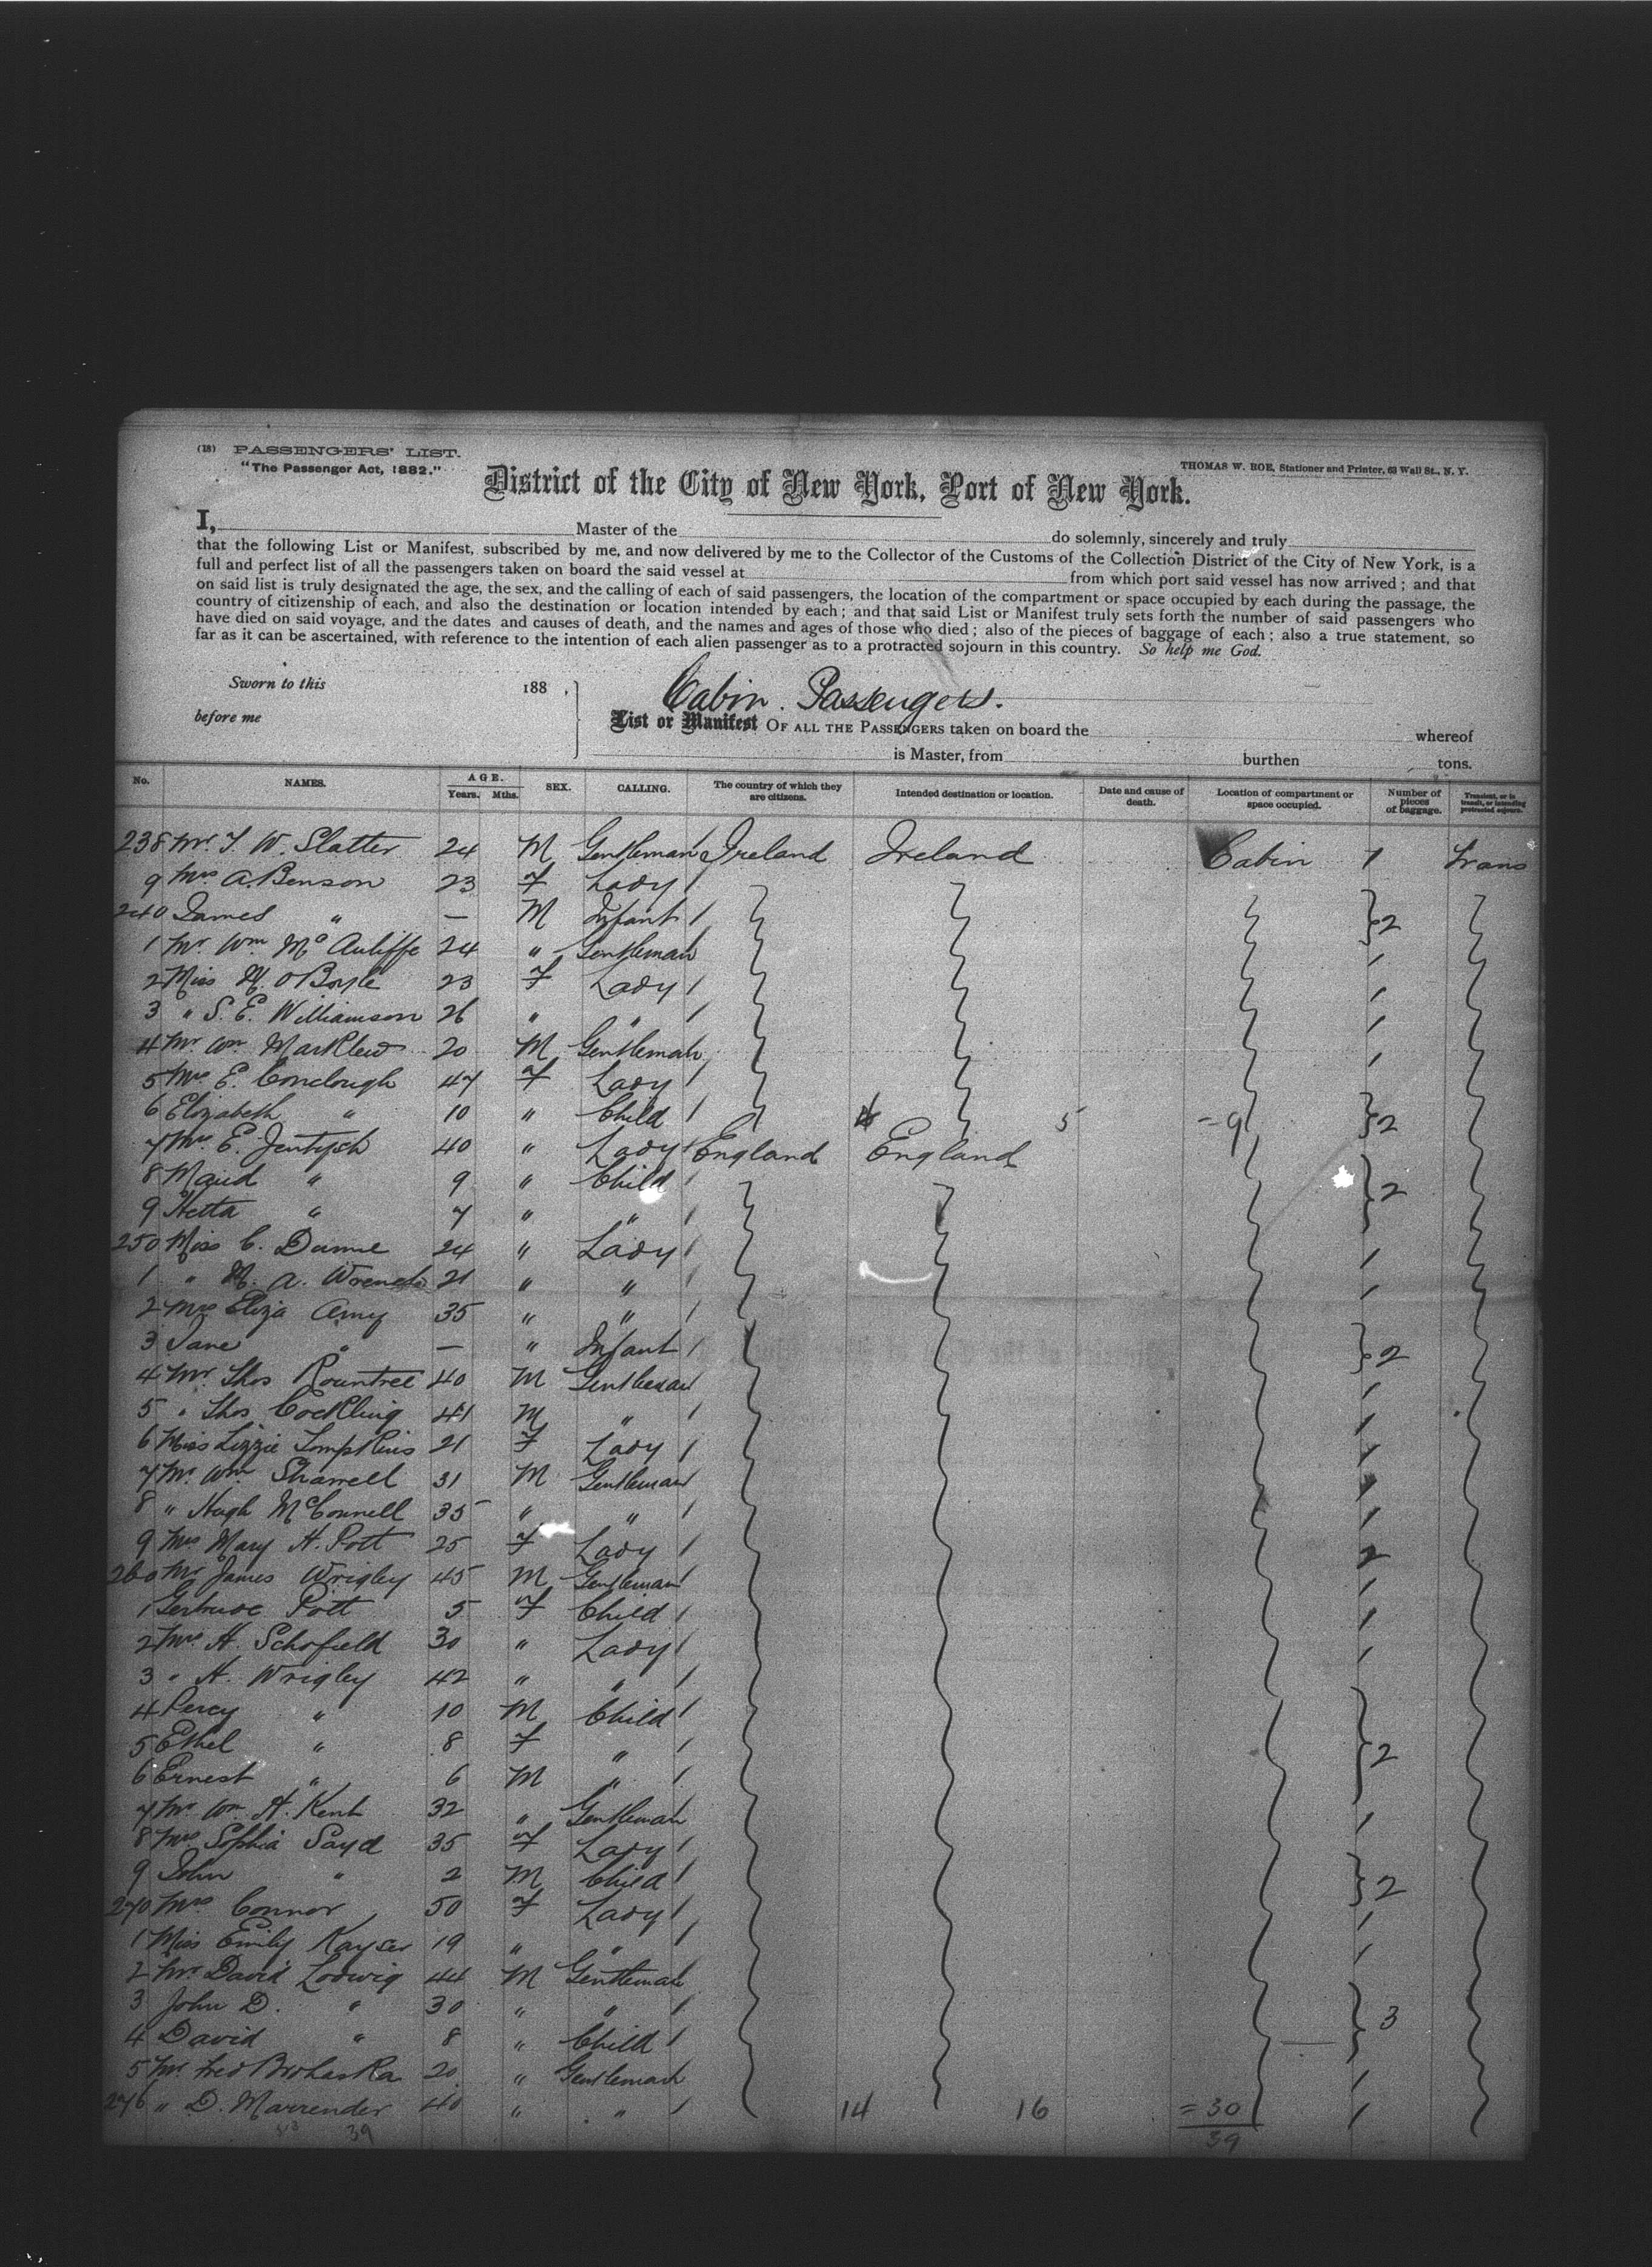 (18) PASSENGERS' LIST.
"The Passenger Act, 1882."
THOMAS W. ROE, Stationer and Printer, 63 Wall St., N. Y.
District of the City of New York, Port of New York.
I, Master of the do solemnly, sincerely and truly
that the following List or Manifest, subscribed by me, and now delivered by me to the Collector of the Customs of the Collection District of the City of New York, is a
full and perfect list of all the passengers taken on board the said vessel at from which port said vessel has now arrived; and that
on said list is truly designated the age, the sex, and the calling of each of said passengers, the location of the compartment or space occupied by each during the passage, the
country of citizenship of each, and also the destination or location intended by each; and that said List or Manifest truly sets forth the number of said passengers who
have died on said voyage, and the dates and causes of death, and the names and ages of those who died; also of the pieces of baggage of each; also a true statement, so
far as it can be ascertained, with reference to the intention of each alien passenger as to a protracted sojourn in this country. So help me God.
Sworn to this 188 ,
before me
Cabin Passengers.
List or Manifest OF ALL THE PASSENGERS taken on board the whereof
is Master, from burthen tons.
No. NAMES. AGE. Years. Mths. SEX. CALLING. The country of which they are citizens. Intended destination or location. Date and cause of death. Location of compartment or space occupied. Number of pieces of baggage. Transient, or in transit, or intending protracted sojourn.
238 Mr. T. W. Slatter 24 M Gentleman Ireland Ireland Cabin 1 Trans
9 Mrs A. Benson 23 F Lady
240 James " — M Infant 2
1 Mr. Wm McAuliffe 24 " Gentleman 1
2 Miss M. O'Boyle 23 F Lady 1
3 " S. E. Williamson 26 " " 1
4 Mr Wm Marklew 20 M Gentleman 1
5 Mrs E. Conclough 47 F Lady
6 Elizabeth " 10 " Child 5 = 9 2
7 Mrs. E. 40 " Lady England England
8 Maud " 9 " Child 2
9 Hetta " 7 " "
250 Miss C. Dunne 24 " Lady 1
1 " M. A. Wrench 21 " " 1
2 Mrs Eliza Amy 35 " "
3 Jane " — " Infant 2
4 Mr. Thos Rountree 40 M Gentleman 1
5 " Thos Cockling 41 M " 1
6 Miss Lizzie Tompkins 21 F Lady 1
7 Mr. Wm Sharrell 31 M Gentleman 1
8 " Hugh McConnell 35 " " 1
9 Mrs Mary H. Pott 25 F Lady 2
260 Mr James Wrigley 45 M Gentleman 1
1 Gertrude Pott 5 F Child 1
2 Mrs H. Schofield 30 " Lady 1
3 " H. Wrigley 42 " "
4 Percy " 10 M Child
5 Ethel " 8 F " 2
6 Ernest " 6 M "
7 Mr. Wm H. Kent 32 " Gentleman 1
8 Mrs. Sophia Sayd 35 F Lady
9 John " 2 M Child 2
270 Mrs Connor 50 F Lady 1
1 Miss Emily Kayser 19 " " 1
2 Mr David Lodwig 44 M Gentleman
3 John D. " 30 " " 3
4 David " 8 " Child
5 Mr. Fred 20 " Gentleman 1
276 " D. Marrender 40 " " 14 16 = 30 1
39 39